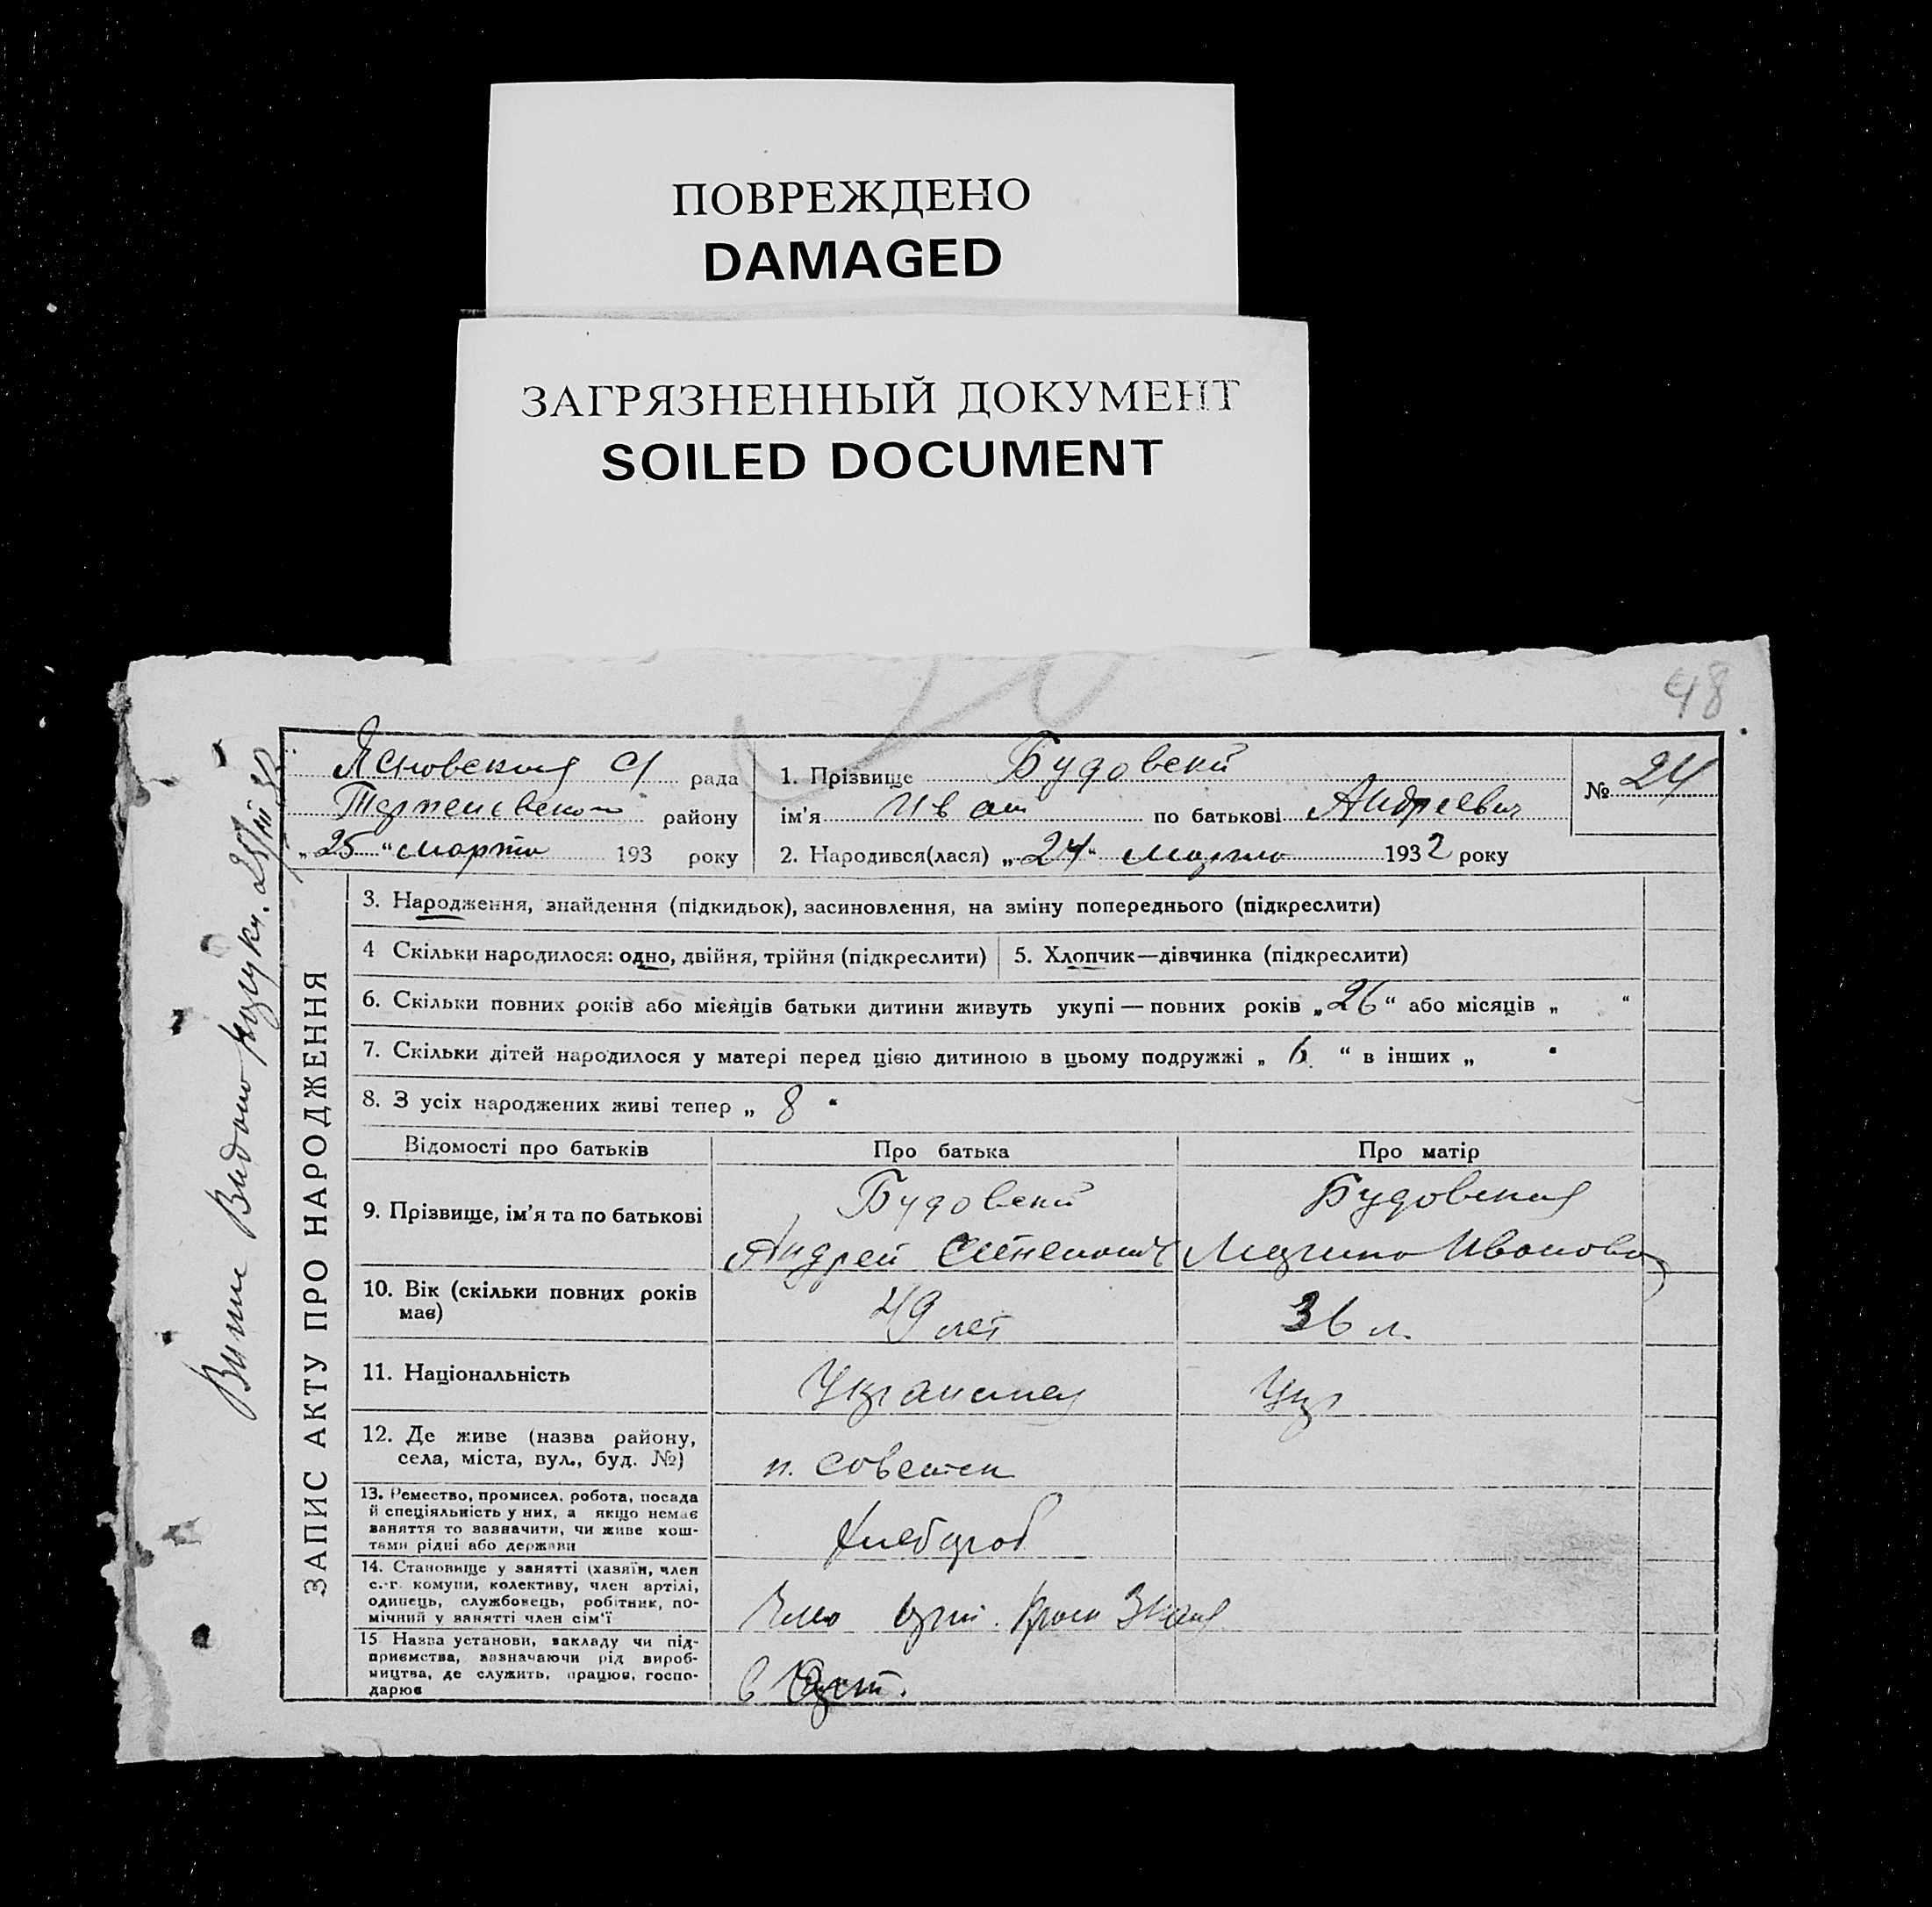 ПОВРЕЖДЕНО
DAMAGED
ЗАГРЯЗНЕННЫЙ ДОКУМЕНТ
SOILED DOCUMENT
48
рада
району
„25“ марта 193 року
1. Прізвище Будовский
ім'я Иван по батькові Андреевич
2. Народився(лася) „24“ марта 1932 року
№ 24
ЗАПИС АКТУ ПРО НАРОДЖЕННЯ
3. Народження, знайдення (підкидьок), засиновлення, на зміну попереднього (підкреслити)
4 Скільки народилося: одно, двійня, трійня (підкреслити)
5. Хлопчик—дівчинка (підкреслити)
6. Скільки повних років або місяців батьки дитини живуть укупі — повних років „26“ або місяців „ “
7. Скільки дітей народилося у матері перед цією дитиною в цьому подружжі „ 6 “ в інших „ “
8. З усіх народжених живі тепер „ 8 “
Відомості про батьків
Про батька
Про матір
9. Прізвище, ім'я та по батькові
Будовский
Андрей
Будовская
Ивановна
10. Вік (скільки повних років
має)
49 лет
36 л.
11. Національність
Укр
12. Де живе (назва району,
села, міста, вул., буд. №)
13. Ремество, промисел, робота, посада
й спеціяльність у них, а якщо немає
заняття то зазначити, чи живе кош-
тами рідні або держави
хлебороб
14. Становище у занятті (хазяїн, член
с.-г. комуни, колективу, член артілі,
одинець, службовець, робітник, по-
мічний у занятті член сім'ї
15 Назва установи, закладу чи під-
приємства, зазначаючи рід вироб-
ництва, де служить, працює, госпо-
дарює